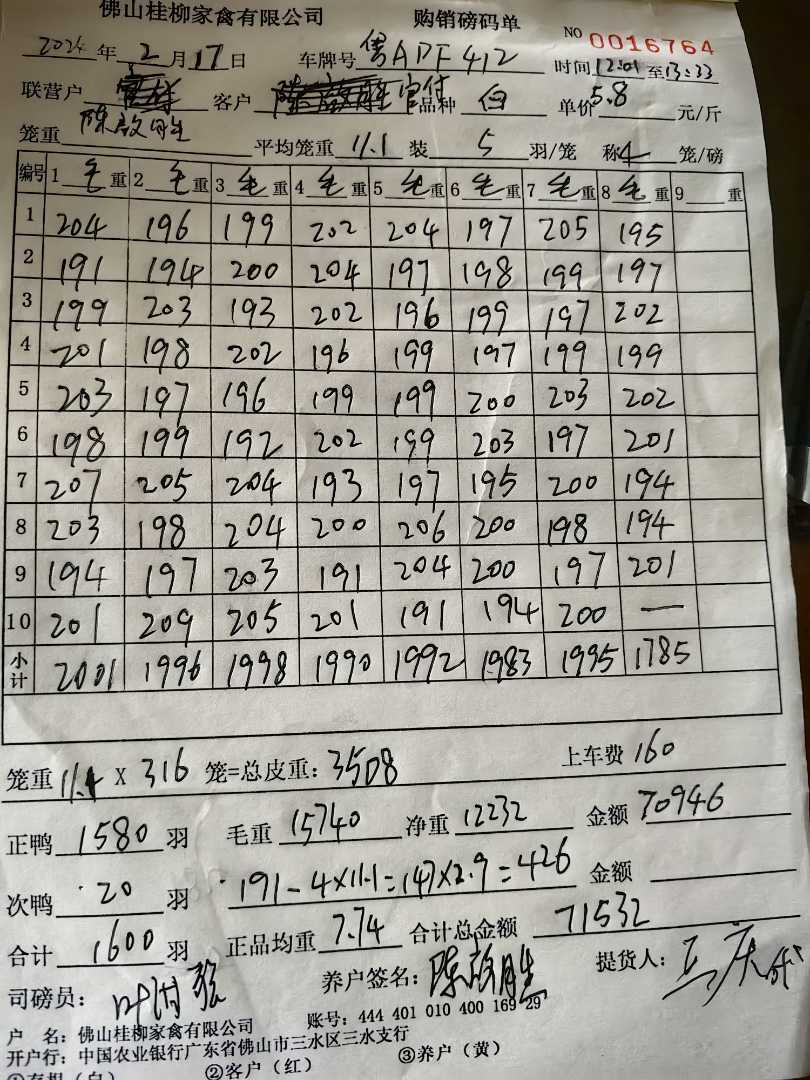 佛山桂柳家禽有限公司 购销磅码单
NO 0016764
2024年2月17日 车牌号 粤ADF412 时间12:01至13:33
联营户 客户 官付 品种 白 单价5.8元/斤
笼重 陈啟胜 平均笼重 11.1 装 5 羽/笼 称4笼/磅
编号 1毛重 2毛重 3毛重 4毛重 5毛重 6毛重 7毛重 8毛重 9重
1 204 196 199 202 204 197 205 195
2 191 194 200 204 197 198 199 197
3 199 203 193 202 196 199 197 202
4 201 198 202 196 199 197 199 199
5 203 197 196 199 199 200 203 202
6 198 199 192 202 199 203 197 201
7 207 205 204 193 197 195 200 194
8 203 198 204 200 206 200 198 194
9 194 197 203 191 204 200 197 201
10 201 209 205 201 191 194 200 —
小计 2001 1996 1998 1990 1992 1983 1995 1785
笼重11.1X316笼=总皮重:3508 上车费160
正鸭1580羽 毛重15740 净重12232 金额70946
次鸭20羽 191-4×11.1=147×2.9=426 金额
合计1600羽 正品均重7.74 合计总金额71532
司磅员:叶 养户签名:陈啟胜 提货人:
户 名:佛山桂柳家禽有限公司 账号:444 401 010 400 169 29
开户行:中国农业银行广东省佛山市三水区三水支行
①存根(白) ②客户(红) ③养户(黄)